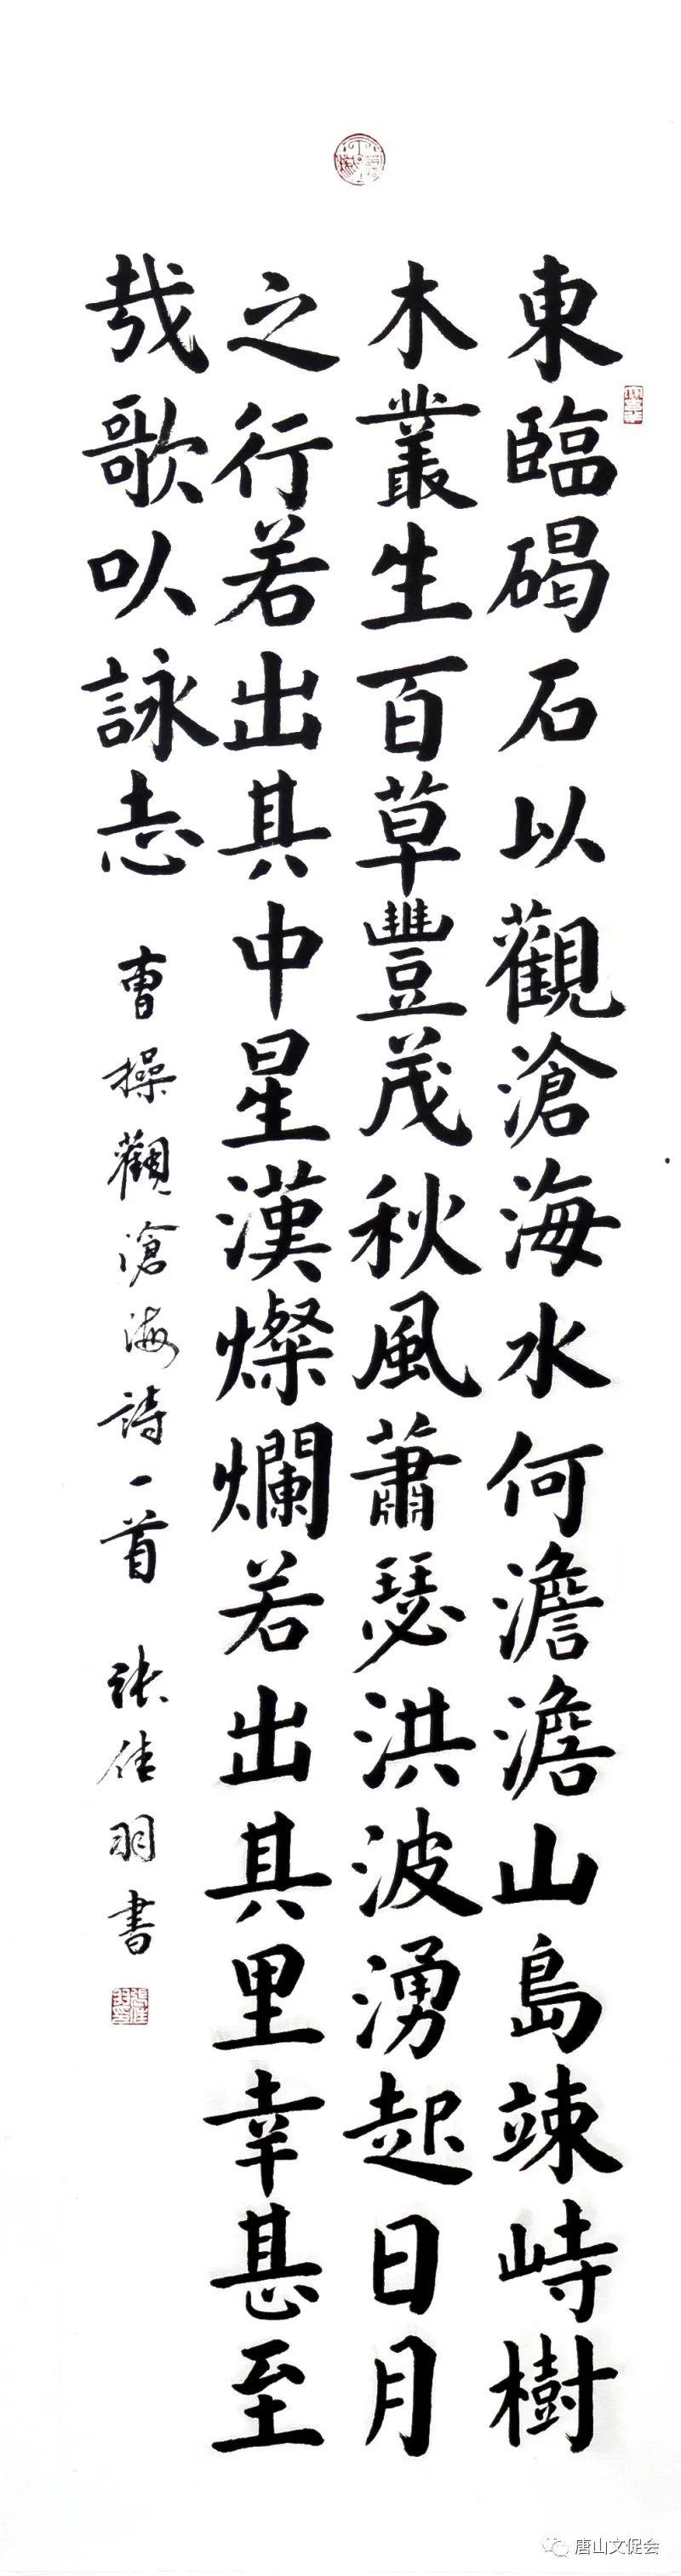 東臨碣石以觀滄海水何澹澹山島竦峙樹
木叢生百草豐茂秋風蕭瑟洪波湧起日月
之行若出其中星漢燦爛若出其里幸甚至
哉歌以詠志 曹操觀滄海詩一首 張佳羽書
唐山文促会